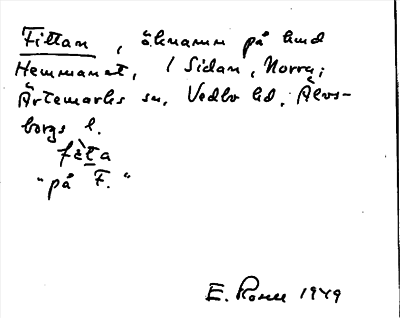 Fittan, öknamn på lund
Hemmanet, 1 Sidan, Norra;
Ärtemarks sn, Vedbo hd, Älvs-
borgs l.
fèta
"på F."
E. Rosell 1949